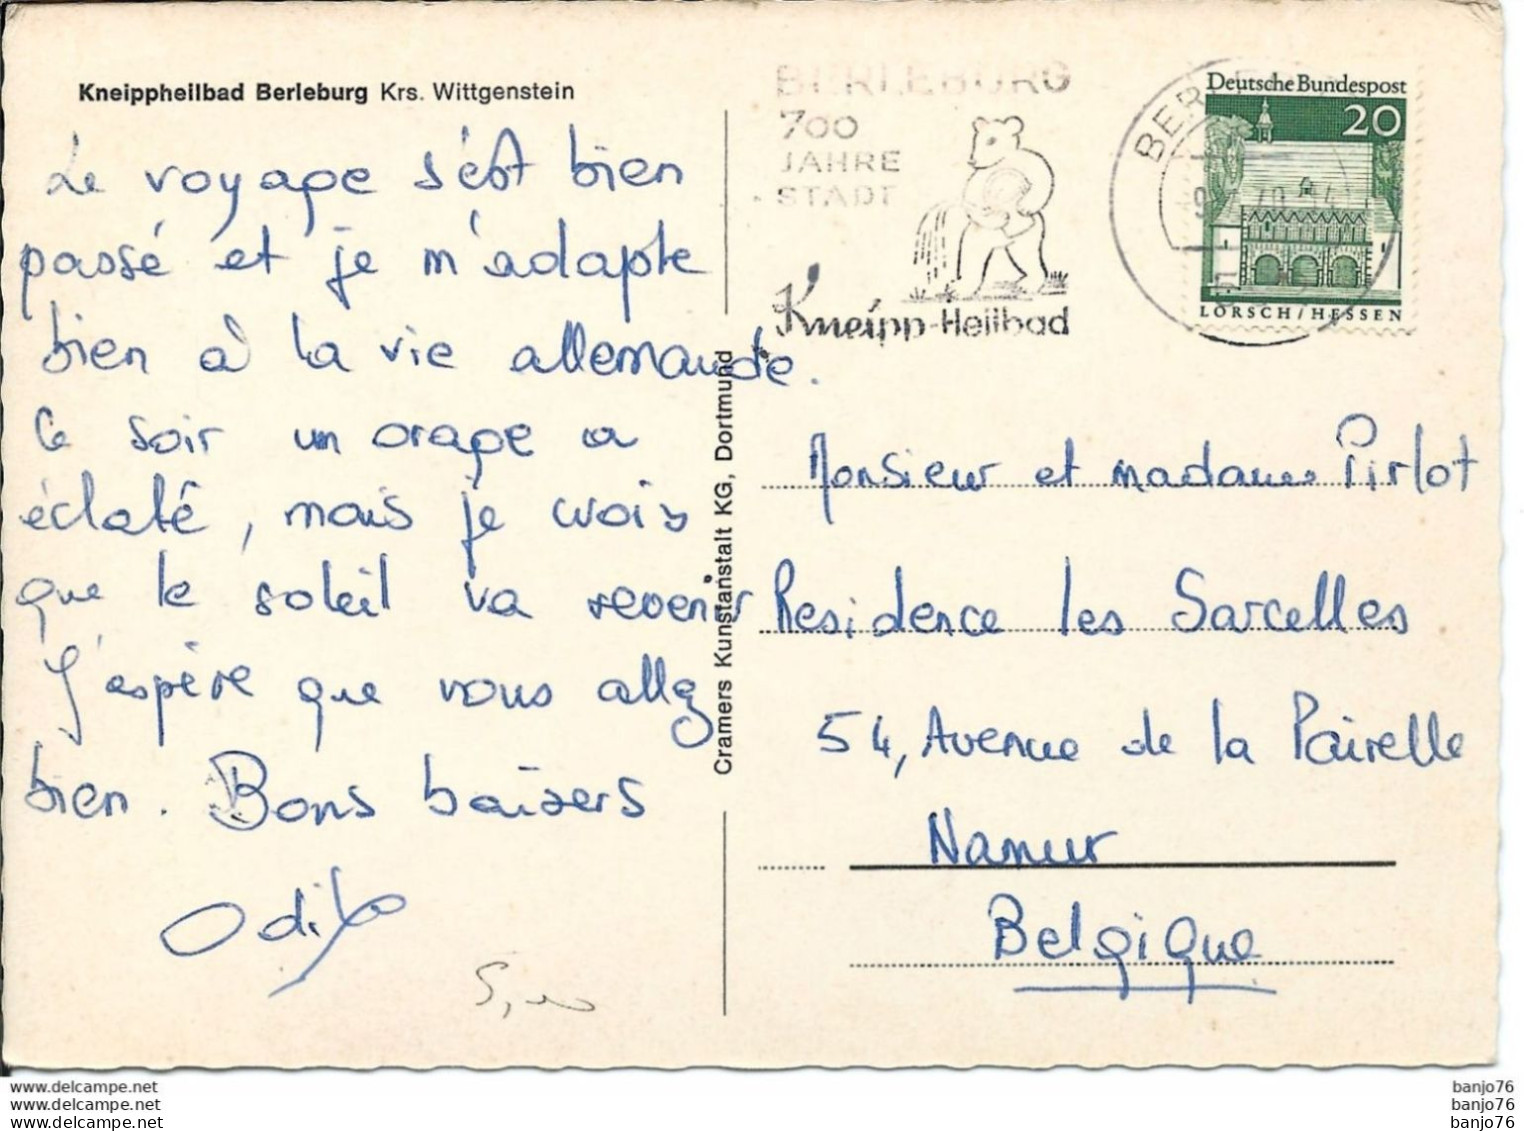 Kneippheilbad Berleburg Krs. Wittgenstein
Le voyage s'est bien
passé et je m'adapte
bien à la vie allemande.
Ce soir un orage a
éclaté, mais je crois
que le soleil va revenir
J'espère que vous allez
bien. Bons baisers
Odile
Cramers Kunstanstalt KG, Dortmund
BERLEBURG
700
JAHRE
STADT
Kneipp-Heilbad
Deutsche Bundespost
20
LORSCH/HESSEN
Monsieur et madame Pirlot
Residence les Sarcelles
54, Avenue de la Pairelle
Namur
Belgique
5,00
www.delcampe.net
www.delcampe.net
www.delcampe.net
banjo76
banjo76
banjo76